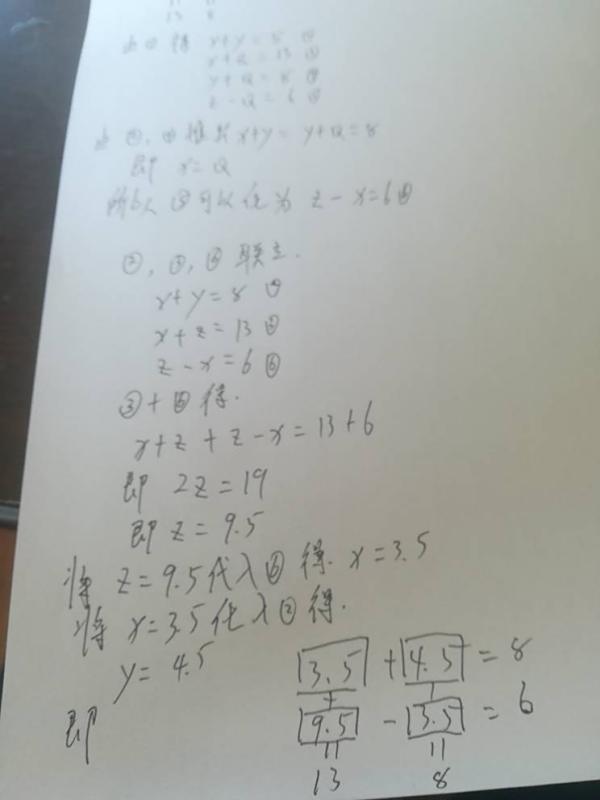 13 8
由①得 x+y=8 ②
x+z=13 ③
y+Q=8 ④
z-Q=6 ⑤
由②,④推出x+y=y+Q=8
即 x=Q
所以⑤可以化为 z-x=6⑥
②,③,⑥联立.
x+y=8
x+z=13
z-x=6⑥
③+⑥得.
x+z+z-x=13+6
即 2z=19
即z=9.5
将 z=9.5代入⑥得. x=3.5
将 x=3.5代入②得.
y=4.5
3.5 + 4.5 = 8
+ +
即 9.5 - 3.5 = 6
13 8